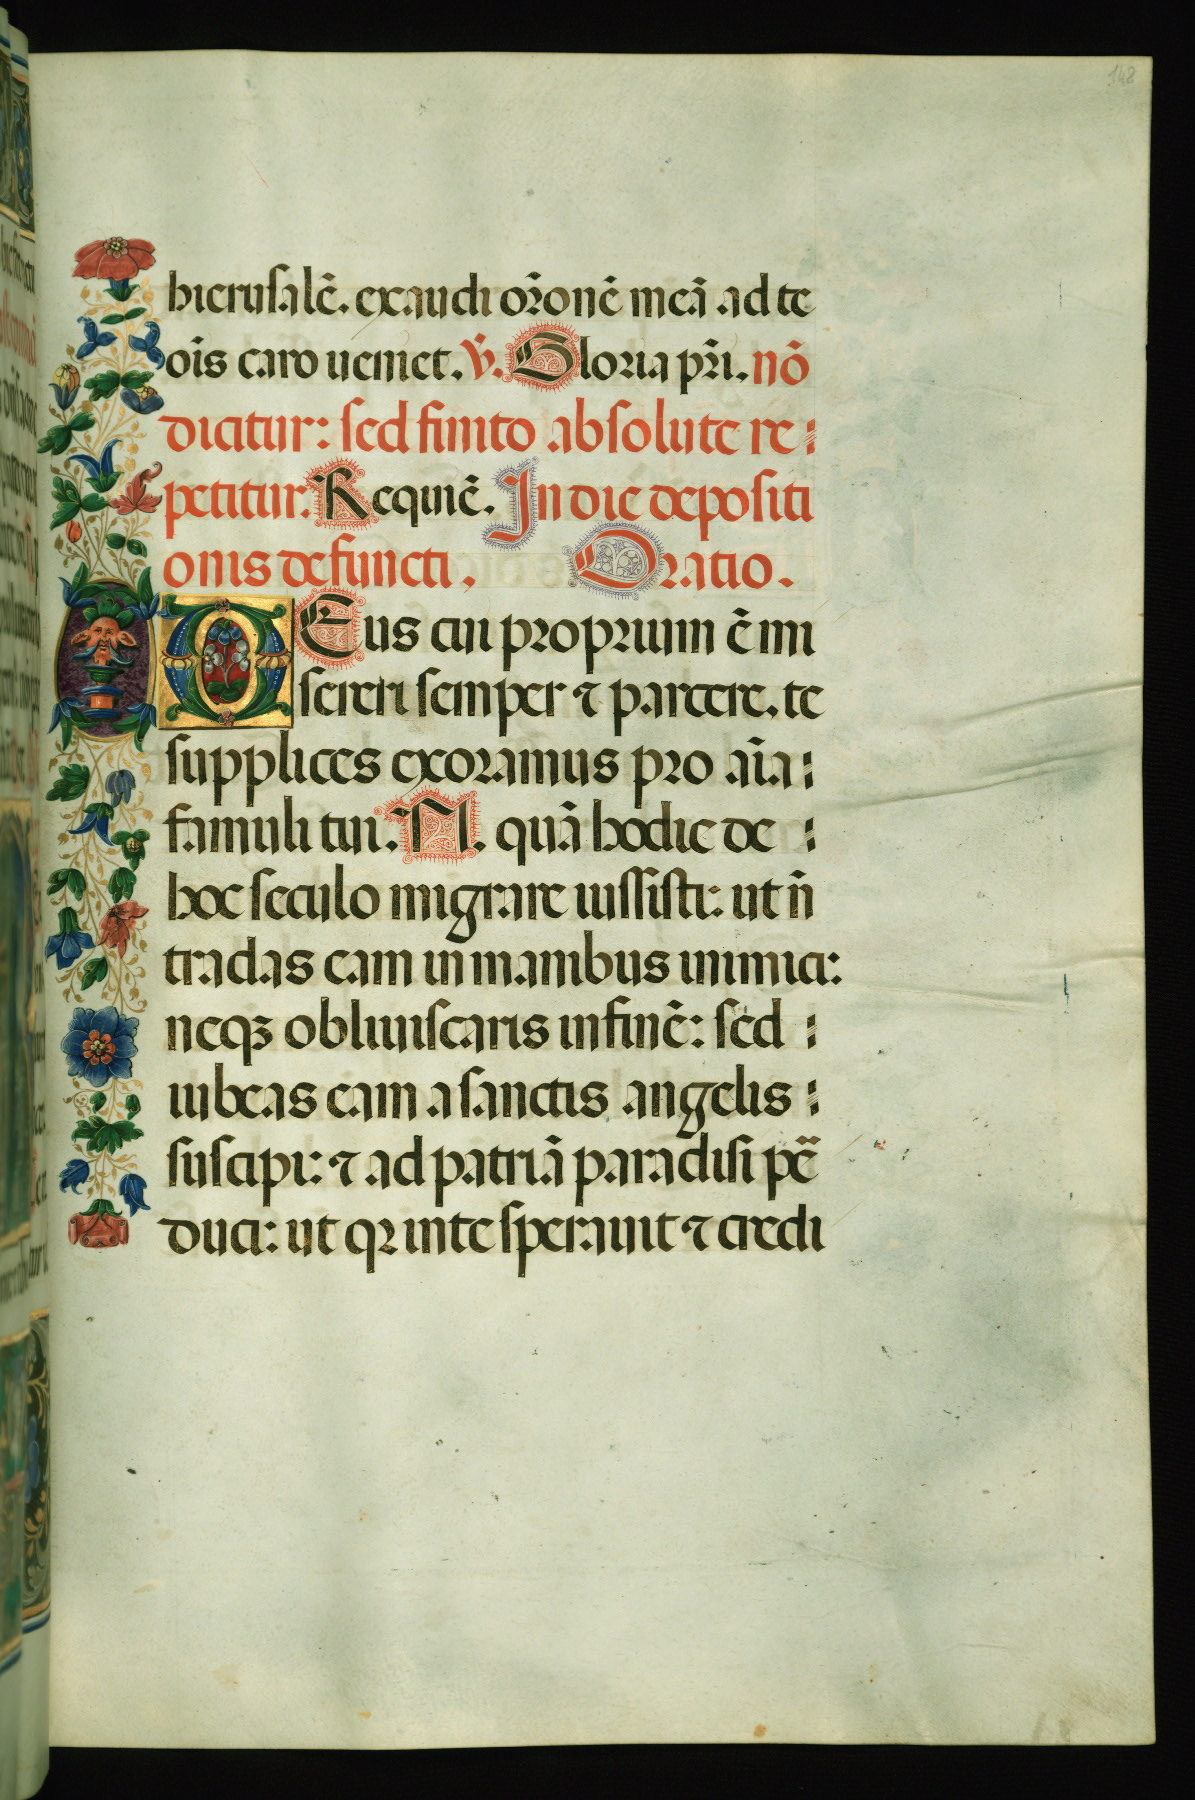 148
hierusalē. exaudi or̄onē meā ad te
oīs caro ueniet. V̄. Gloria pr̄i. nō
dicitur: sed finito absolute re:
petitur. Requiē. In die depositi
onis defuncti. Oratio.
DEus cui proprium ē mi
sereri semper ⁊ parcere. te
supplices exoramus pro aīa:
famuli tui. N. quā hodie de :
hoc seculo migrare iussisti: ut ñ
tradas eam in manibus inimici:
neqꝫ obliuiscaris in finē: sed :
iubeas eam a sanctis angelis :
suscipi: ⁊ ad patriā paradisi pē
duci: ut qꝛ in te sperauit ⁊ credi